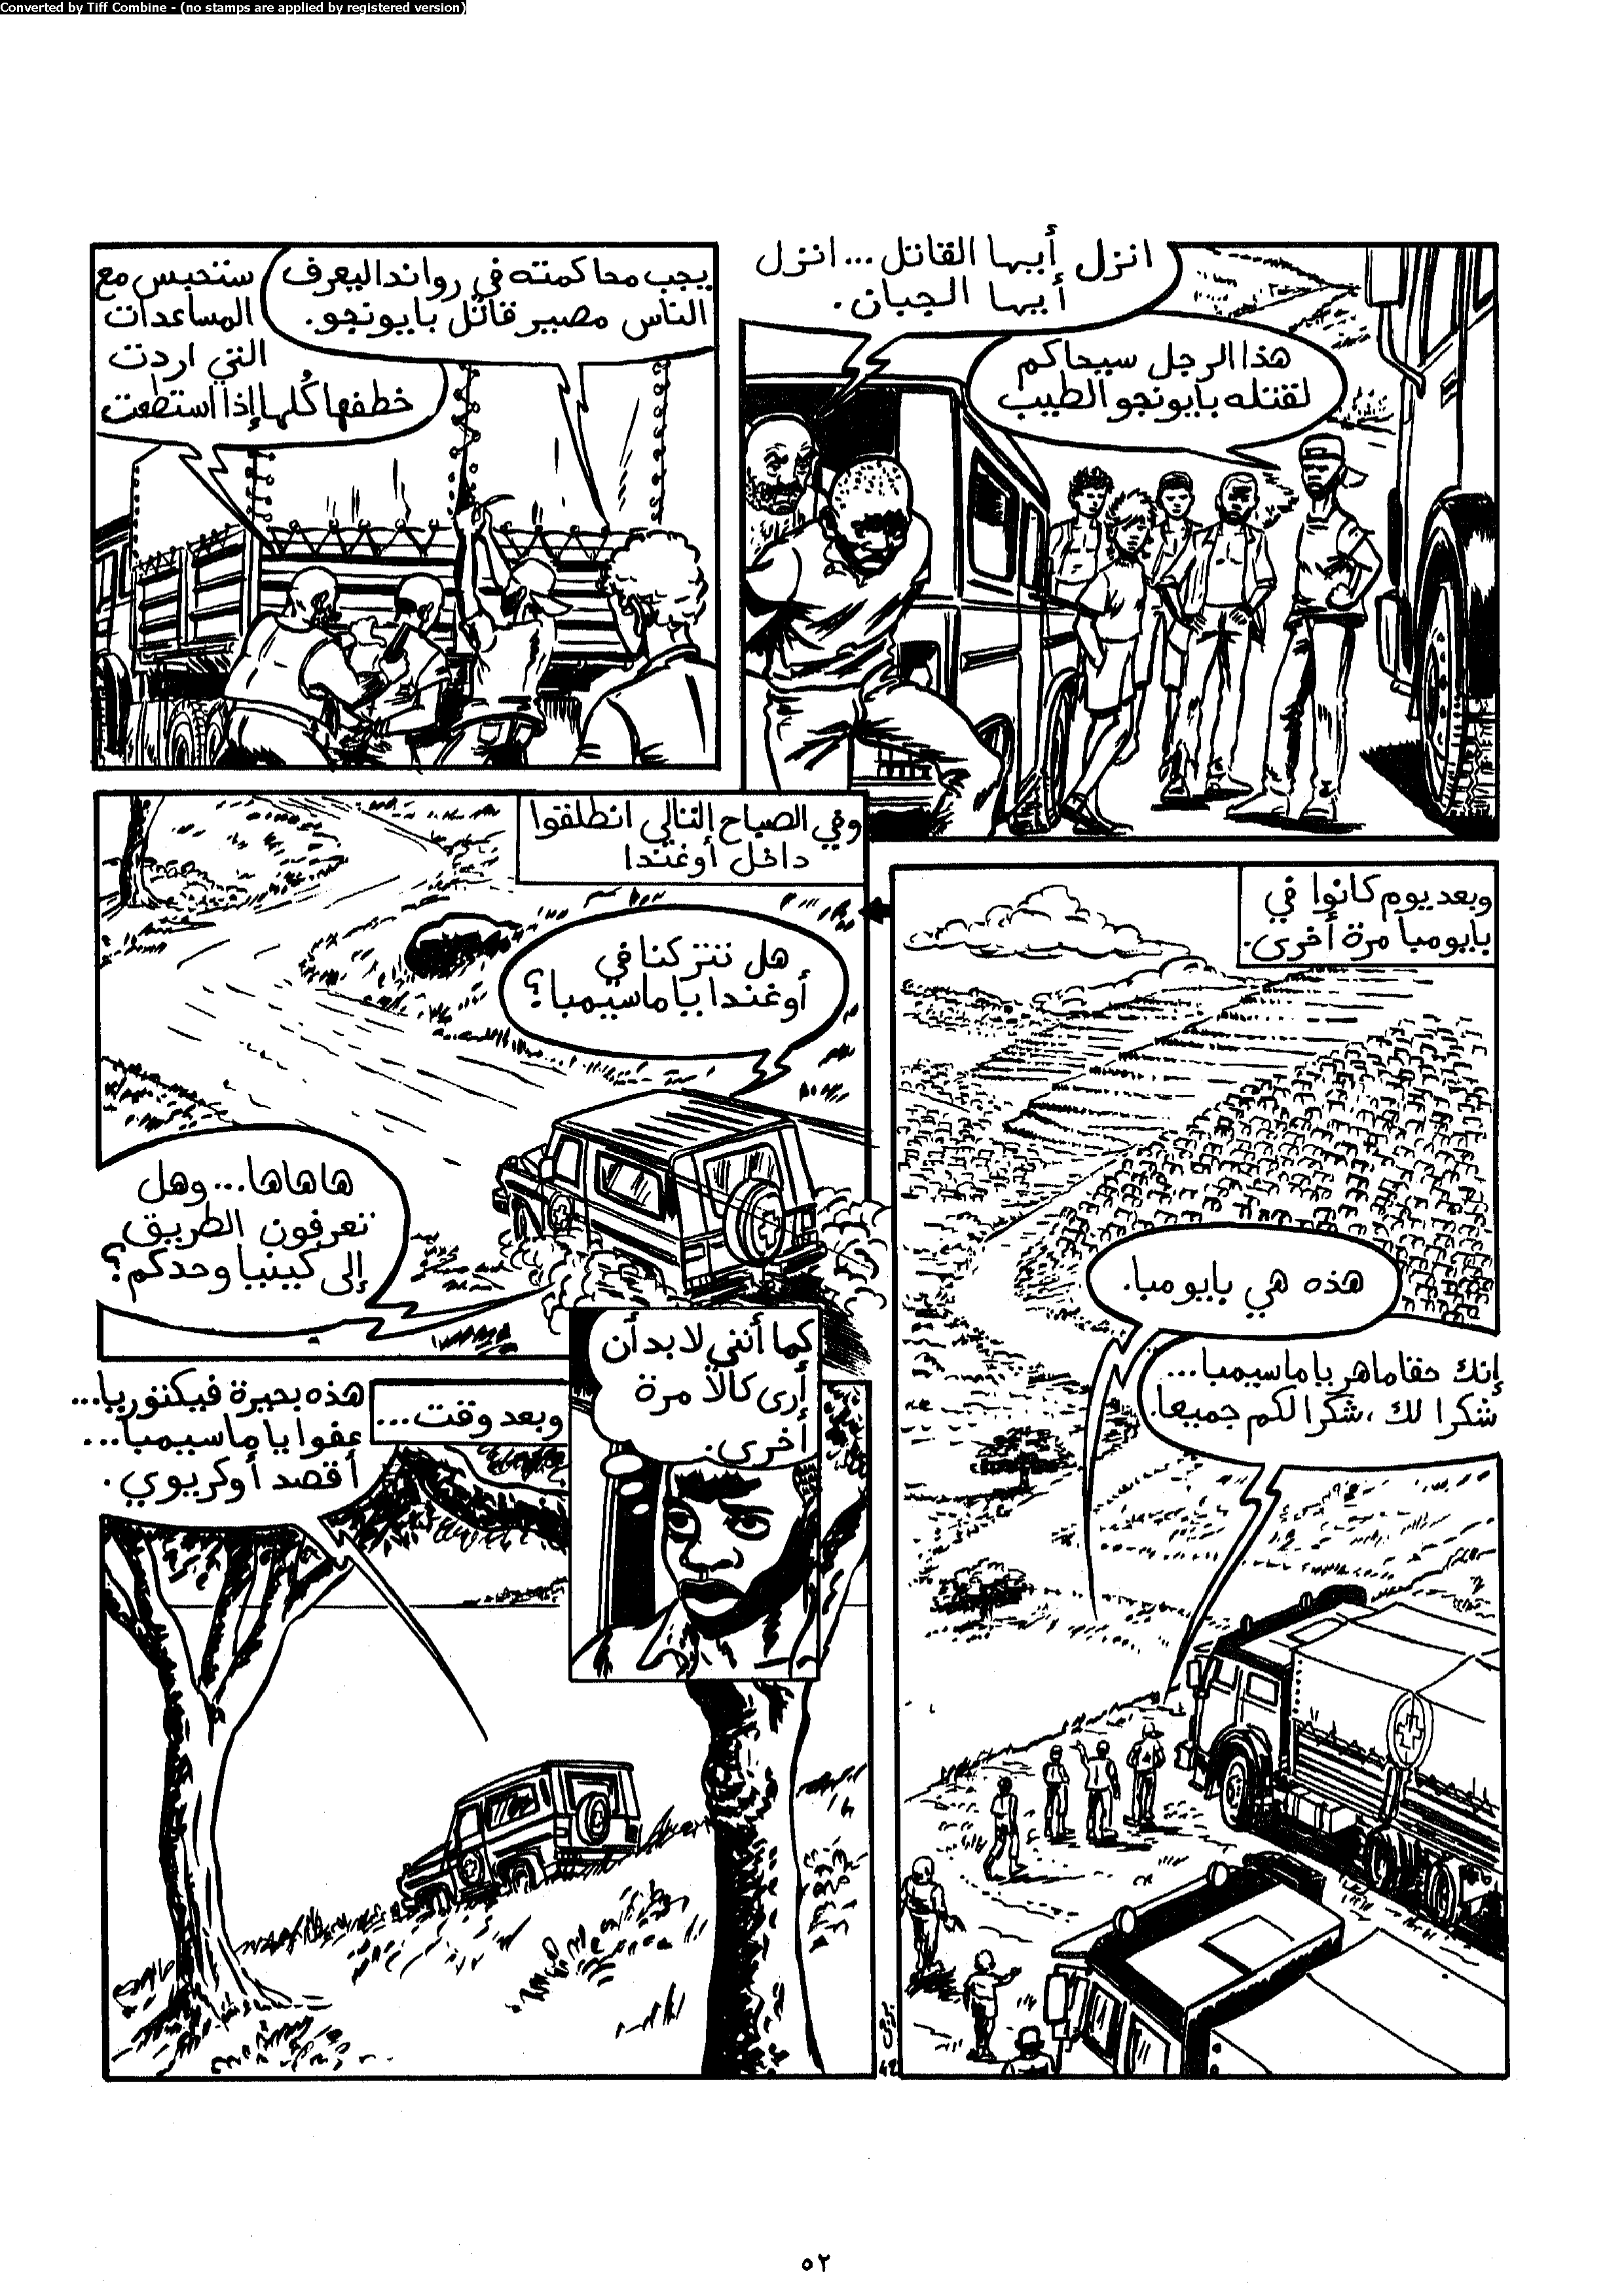 Converted by Tiff Combine - (no stamps are applied by registered version)
انزل أيها القاتل... انزل
أيها الجبان.
هذا الرجل سيحاكم
لقتله بايونجو الطبيب
يجب محاكمته في رواندا ليعرف
الناس مصير قاتل بايونجو.
ستحبس مع
المساعدات
التي اردت
خطفها كُلها إذا استطعت
وبعد يوم كانوا في
بايومبا مرة أخرى.
هذه هي بايومبا.
إنك حقا ماهر يا ماسيمبا...
شكرا لك، شكرا لكم جميعا.
وفي الصباح التالي انطلقوا
داخل أوغندا
هل نتركنا في
أوغندا يا ماسيمبا؟
هاهاها... وهل
تعرفون الطريق
إلى كينيا وحدكم؟
كما أنني لابد أن
أرى كالا مرة
أخرى.
وبعد وقت...
هذه بحيرة فيكتوريا...
عفوا يا ماسيمبا...
أقصد أوكريوي.
٥٢